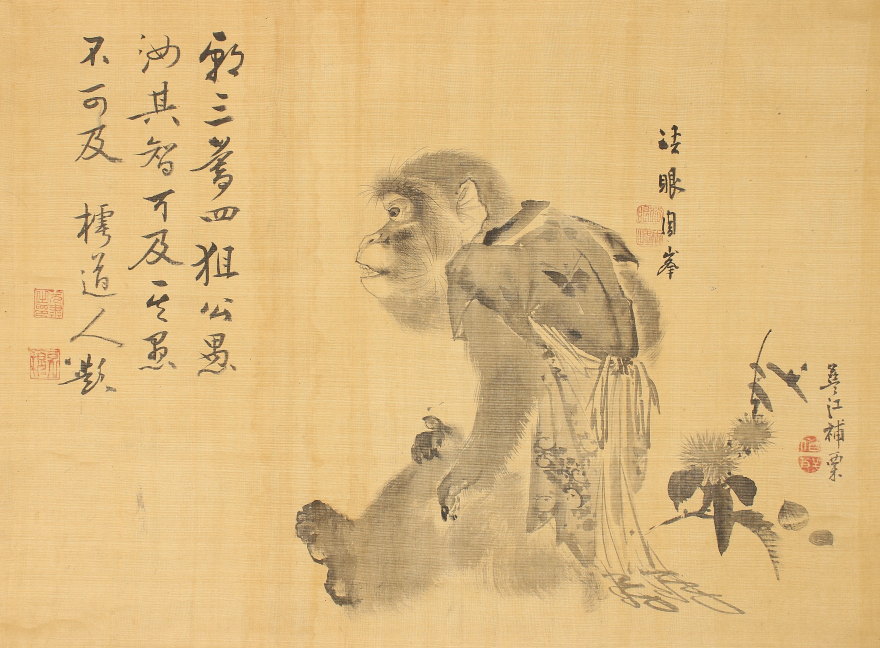 江補栗
法眼周峯
朝三暮四狙公愚
汝其智可及其愚
不可及 樗道人題